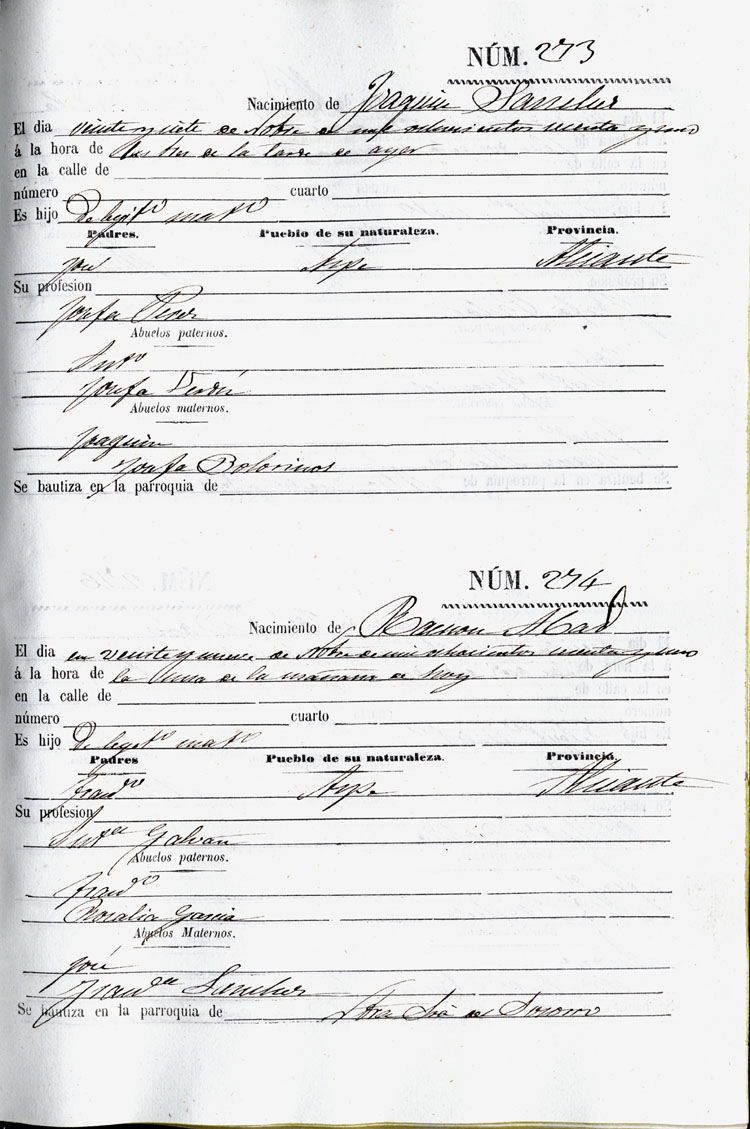 NÚM. 273
Nacimiento de Joaquin Sanchez
El dia veinte y siete de Nobre de mil ochocientos sesenta y uno
á la hora de las tres de la tarde de ayer
en la calle de
número cuarto
Es hijo de legitº matº
Padres. Pueblo de su naturaleza. Provincia.
José Aspe Alicante
Su profesion
Josefa Perez
Abuelos paternos.
Antº
Josefa Verdú
Abuelos maternos.
Joaquin
Josefa Bolorinos
Se bautiza en la parroquia de
NÚM. 274
Nacimiento de Ramon Mas
El dia en veinte y nueve de Nobre de mil ochocientos sesenta y uno
á la hora de la una de la mañana de hoy
en la calle de
número cuarto
Es hijo De legitº matº
Padres Pueblo de su naturaleza. Provincia.
Franco Aspe Alicante
Su profesion
Antª Galvañ
Abuelos paternos.
Franco
Rosalia Garcia
Abuelos Maternos.
José
Franca Sanchez
Se bautiza en la parroquia de Ntra Sra del Socorro